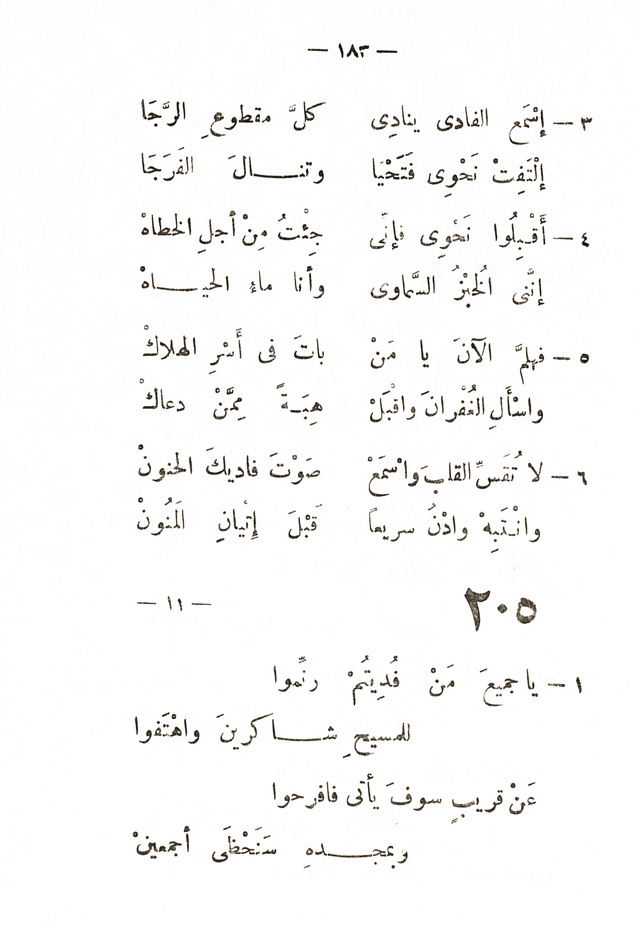 — ١٨٣ —
٣ — إسْمَع الفادى ينادِى كلَّ مقطوعِ الرَّجَا
إلْتَفِتْ نَحْوِى فَتَحْيَا وتنـــالَ الفَرَجَا
٤ — أَقْبِلُوا نَحْوِى فإنّى جِئْتُ مِنْ أجلِ الخطاهْ
إنَّنى الخُبْزُ السَّماوى وأنا ماءُ الحيـــاهْ
٥ — فهلمَّ الآنَ يا مَنْ باتَ فى أَسْرِ الهلاكْ
واسْأَلِ الغُفْرانَ واقْبَلْ هِبَـةً مِمَّنْ دعاكْ
٦ — لا تُقَسِّ القلبَ واسْمَعْ صَوْتَ فاديكَ الحنونْ
وانْتَبِهْ وادْنُ سريعاً قَبْلَ إتيانِ المَنُونْ
٢٠٥ — ١١ —
١ — يا جميعَ مَنْ فُدِيتُمْ رنِّموا
للمسيحِ شـــاكرينَ واهْتَفوا
عَنْ قريبٍ سوفَ يأتى فافرحوا
وبمجـــدهِ سَنَحْظَى أجمعينْ